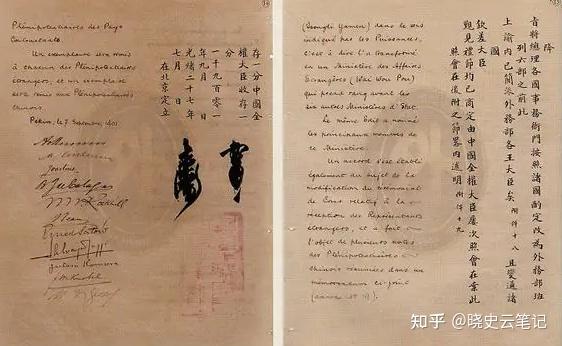 Plénipotentiaires des Pays
Contractants.
Un exemplaire sera remis
à chacun des Plénipotentiaires
étrangers, et un exemplaire
sera remis aux Plénipotentiaires
chinois.
Pékin, le 7 Septembre, 1901
Joostens
B.J. de Cologan
Beau
Ernest Satow
Salvago Raggi
Jutaro Komura
F.M. Knobel
M. de Giers
存一分中國全
權大臣收存一
分
一千九百零一
年九月 日
光緒二十七年
七月 日
在北京定立
(Tsungli Yamen) dans le sens
indiqué par les Puissances,
c'est à dire l'a transformé
en un Ministère des Affaires
Etrangères (Wai Wou Pou)
qui prend rang avant les
six autres Ministères d'Etat.
Le même Edit a nommé
les principaux membres de
ce Ministère.
Un accord s'est établi
également au sujet de la
modification du cérémonial
de Cour relatif à la
réception des Représentants
étrangers, et a fait
l'objet de plusieurs notes
des Plénipotentiaires
chinois résumées dans un
mémorandum ci-joint
(annexe No 19).
降
旨將總理各國事務衙門按照諸國酌定改為外務部班
列六部之前此
上諭內已簡派外務部各王大臣矣附件十八且變通諸
國
欽差大臣
覲見禮節均已商定由中國全權大臣屢次照會在案此
照會在後附之節略內述明附件十九
知乎 @晓史云笔记